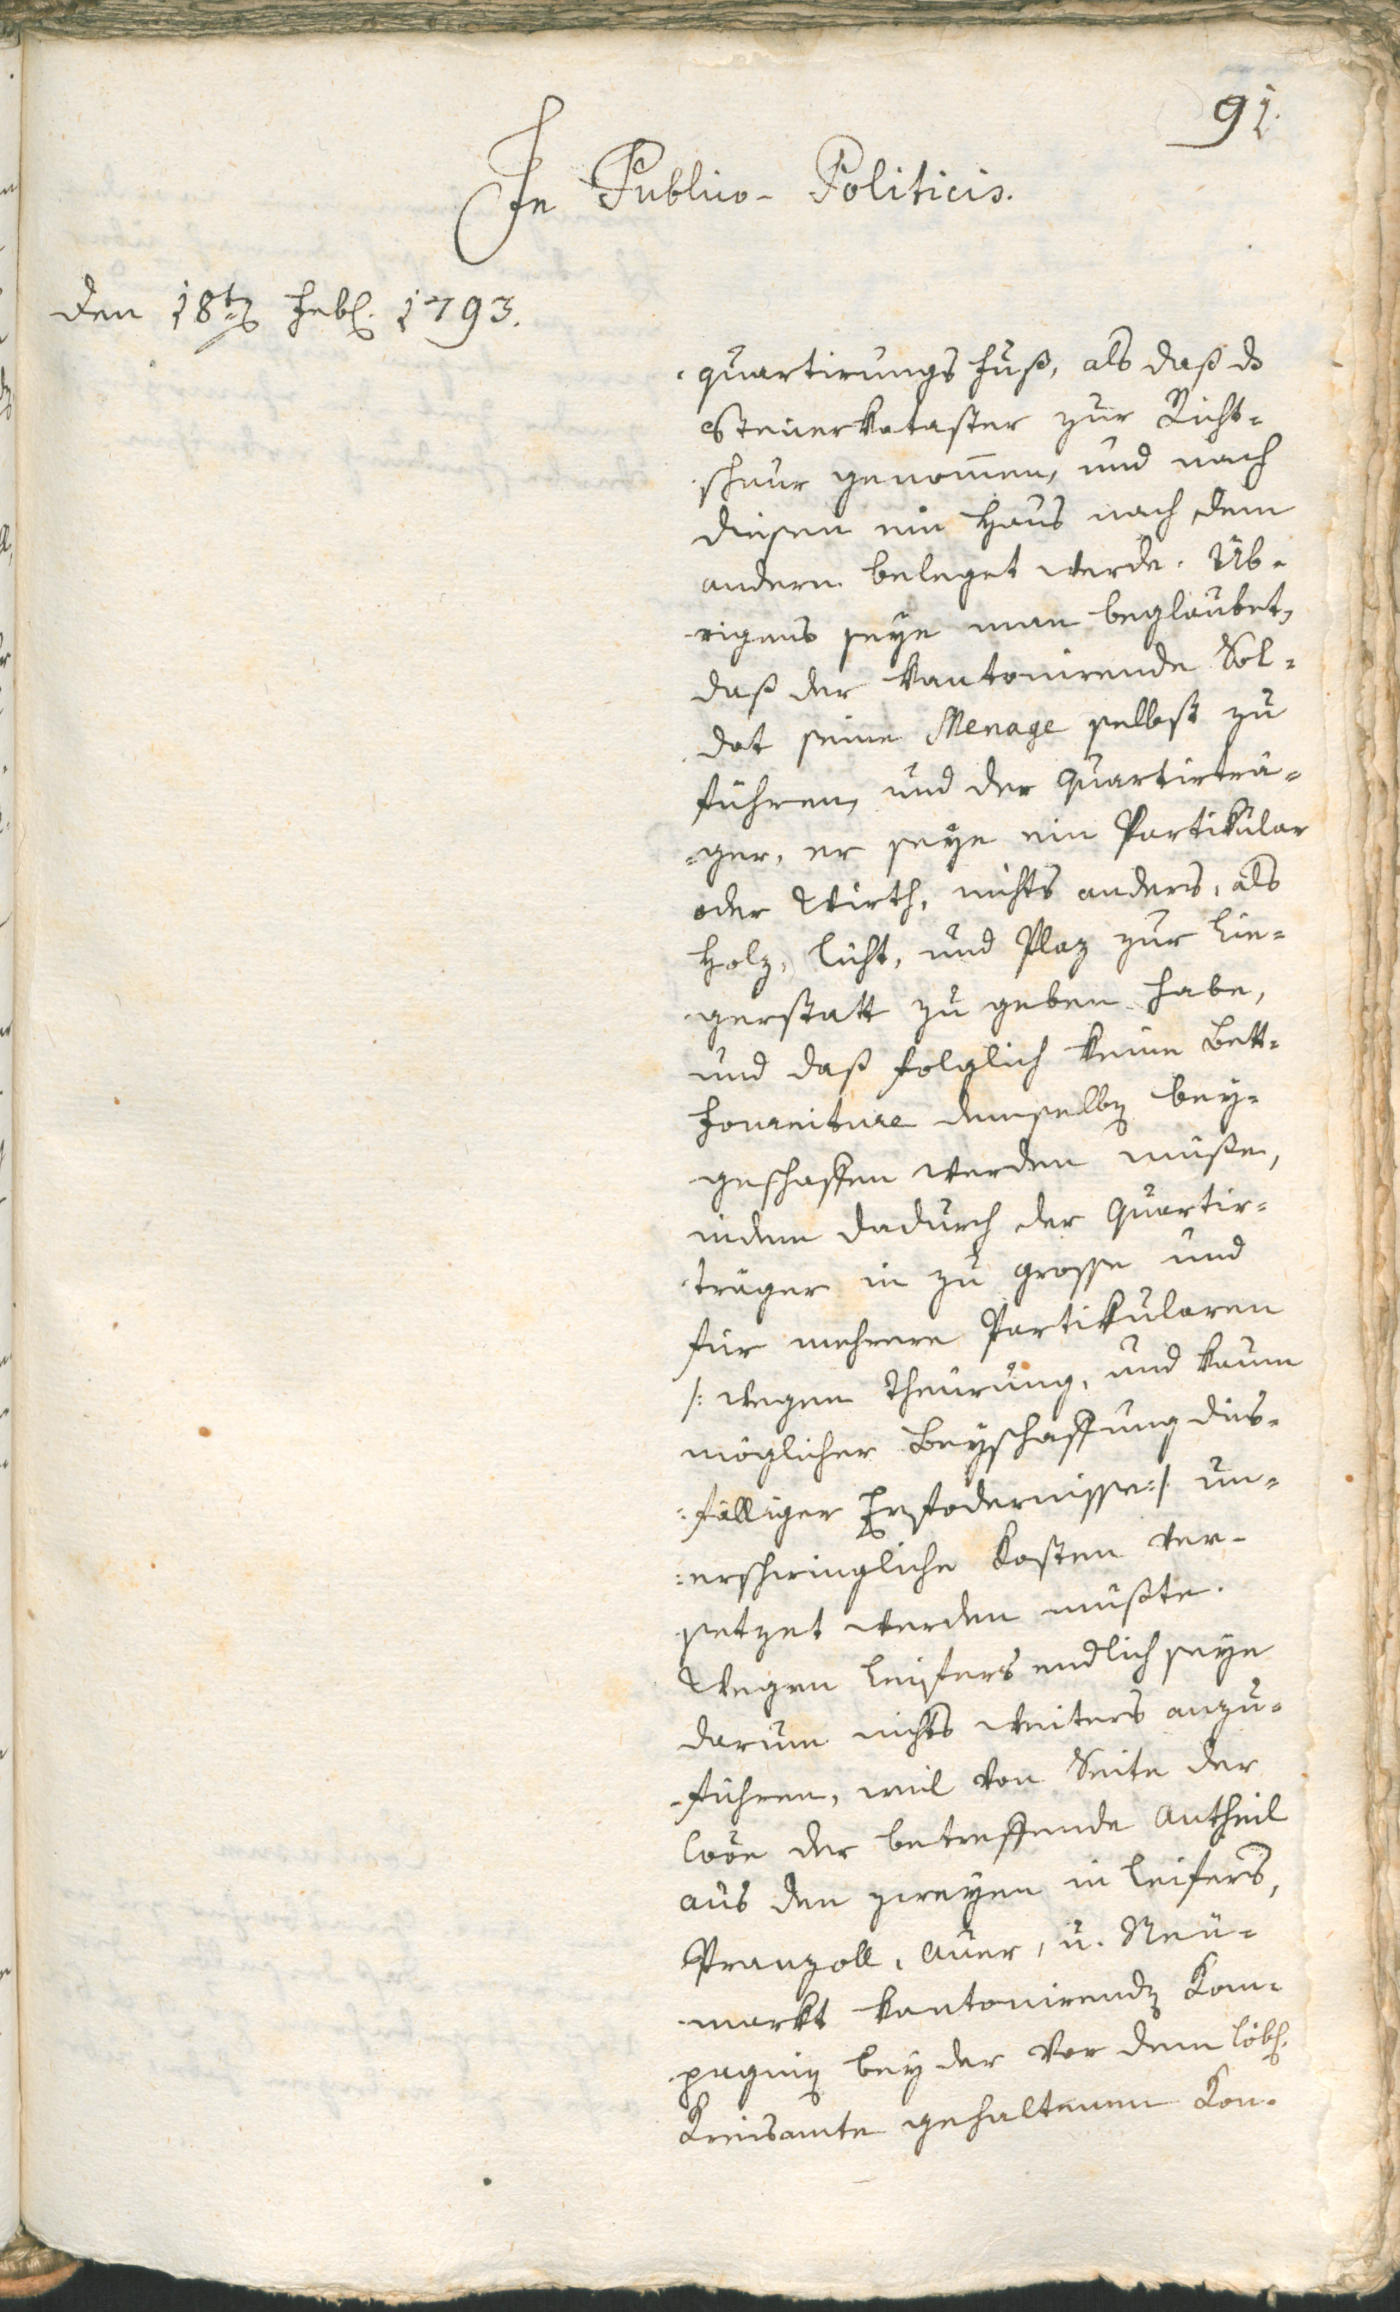 91.
In Publico-Politicis.
Den 18ten Febl. 1793.
quartirungs Fuß, als daß der
Steuerkataster zur Richt-
schnur genommen, und nach
diesen ein Haus nach dem
andern beleget werde. Üb-
rigens seye man beglaubet,
daß der kantonirende Sol-
dat seine Menage selbst zu
führen, und der Quartirträ-
ger, er seye ein Partikular
oder Wirth, nichts anders, als
Holz, Licht, und Plaz zur Lie-
gerstatt zu geben habe,
und daß folglich keine Bett-
Fourniture demselben bey-
geschaffen werden müße,
indem dadurch der Quartir-
träger in zu grosse und
für mehrere Partikularen
/: wegen Theurung, und kaum
möglicher Beyschaffung dies-
fälliger Erfodernisse :/ un-
erschwingliche Kosten ver-
setzet werden müßte.
Wegen Leifers endlich seye
darum nichts weiters anzu-
führen, weil von Seite der
Loöe der betreffende Antheil
aus den zweyen in Leifers,
Branzoll, Auer, u. Neu-
markt kantonirenden Kom-
pagnien bey der vor dem löbl.
Kreisamte gehaltenen Kon-